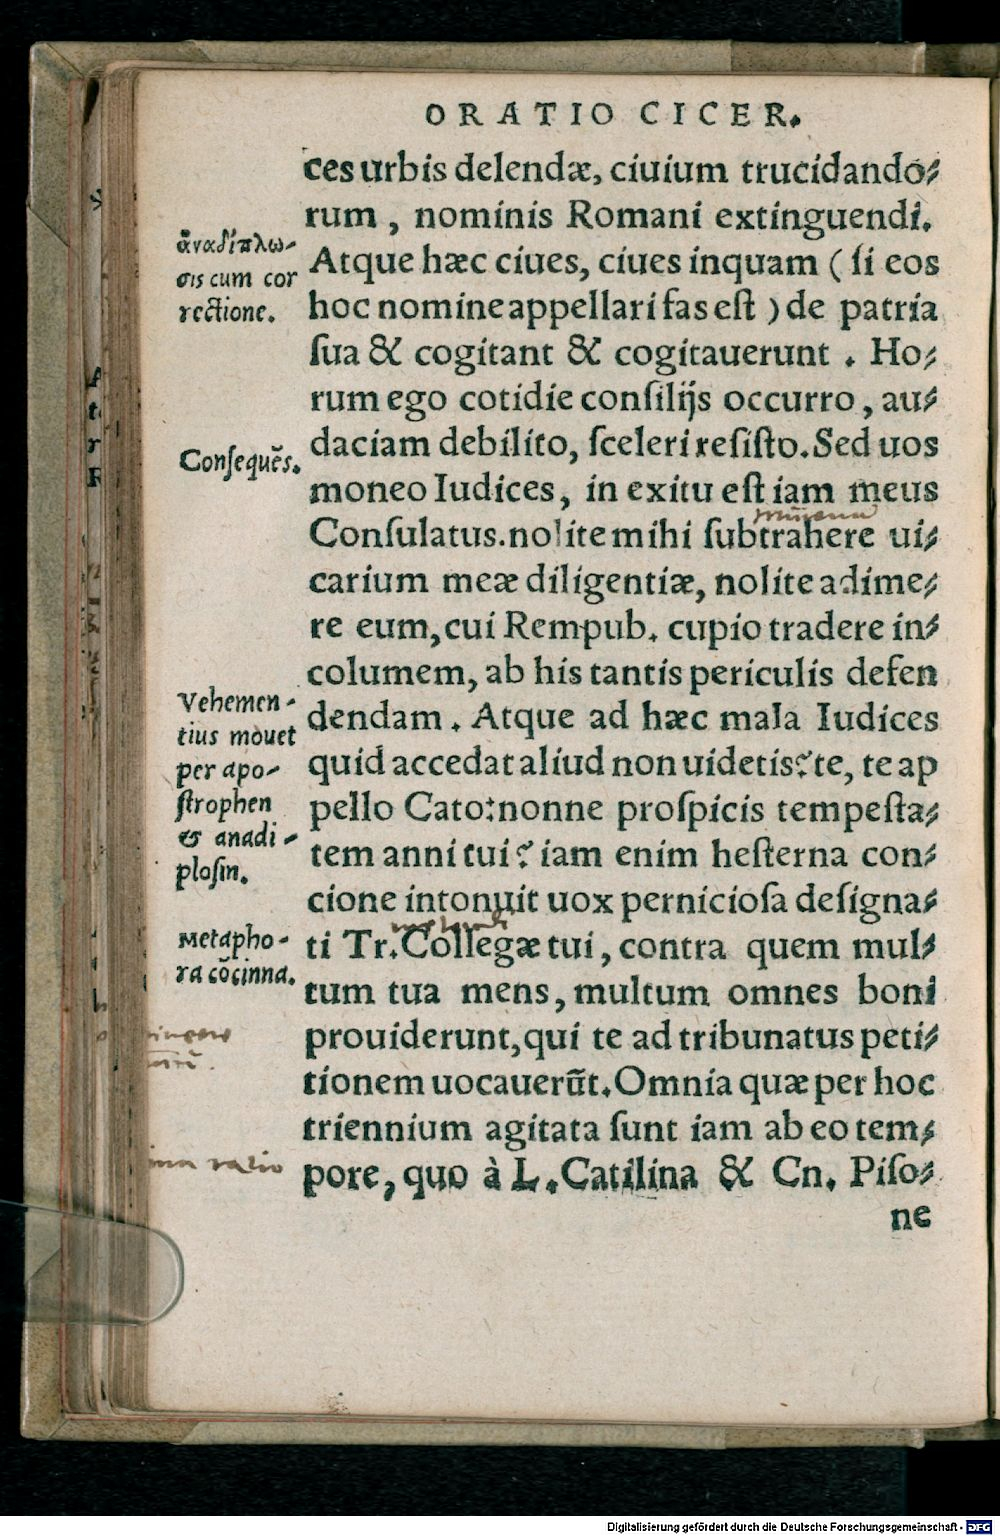 ORATIO CICER.
ces urbis delendæ, ciuium trucidando-
rum, nominis Romani extinguendi.
Atque hæc ciues, ciues inquam (ſi eos
hoc nomine appellari fas eſt) de patria
ſua & cogitant & cogitauerunt. Ho-
rum ego cotidie conſilijs occurro, au-
daciam debilito, ſceleri reſiſto. Sed uos
moneo Iudices, in exitu eſt iam meus
Conſulatus. nolite mihi ſubtrahere ui-
carium meæ diligentiæ, nolite adime-
re eum, cui Rempub. cupio tradere in-
columem, ab his tantis periculis defen
dendam. Atque ad hæc mala Iudices
quid accedat aliud non uidetis? te, te ap
pello Cato: nonne proſpicis tempeſta-
tem anni tui? iam enim heſterna con-
cione intonuit uox pernicioſa deſigna-
ti Tr. Collegæ tui, contra quem mul-
tum tua mens, multum omnes boni
prouiderunt, qui te ad tribunatus peti-
tionem uocauerũt. Omnia quæ per hoc
triennium agitata ſunt iam ab eo tem-
pore, quo à L. Catilina & Cn. Piſo-
ne
ἀναδίπλω-
σις cum cor
rectione.
Conſequẽs.
Vehemen-
tius mouet
per apo-
ſtrophen
& anadi-
ploſin.
Metapho-
ra cõcinna.
ratio
Digitalisierung gefördert durch die Deutsche Forschungsgemeinschaft - DFG